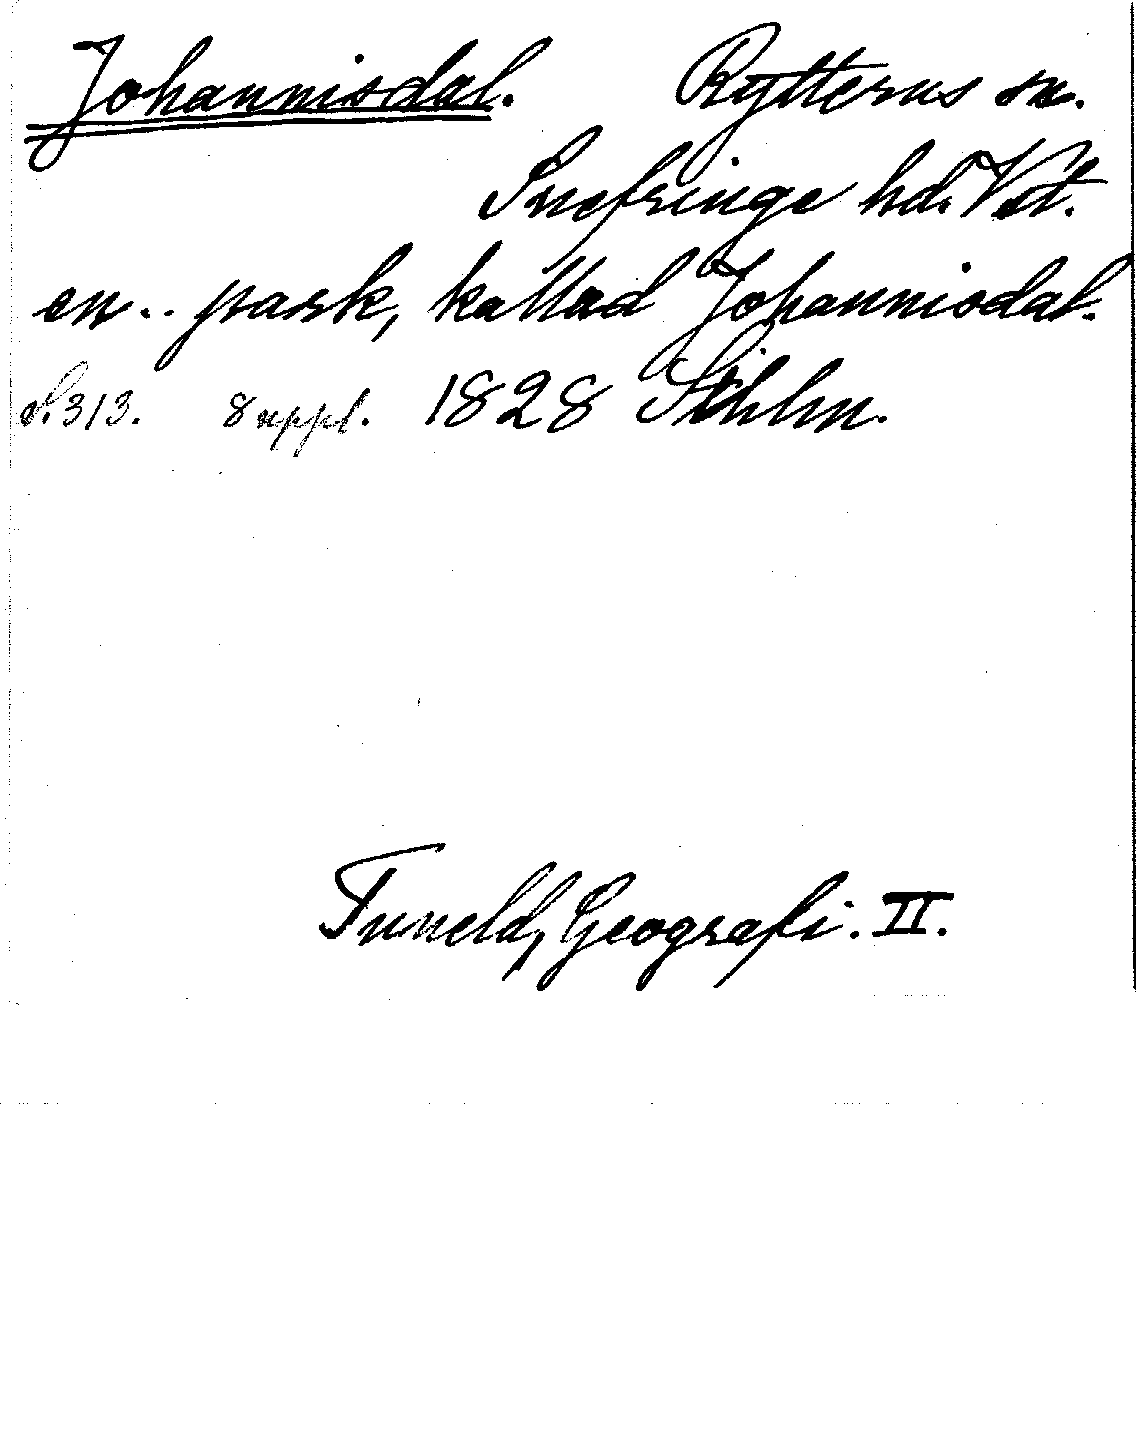 Johannisdal. Rytterns sn.
Snefringe hd. Vstl.
en.. park, kallad Johannisdal.
S. 313. 8 uppl. 1828 Sthlm.
Tuneld, Geografi. II.